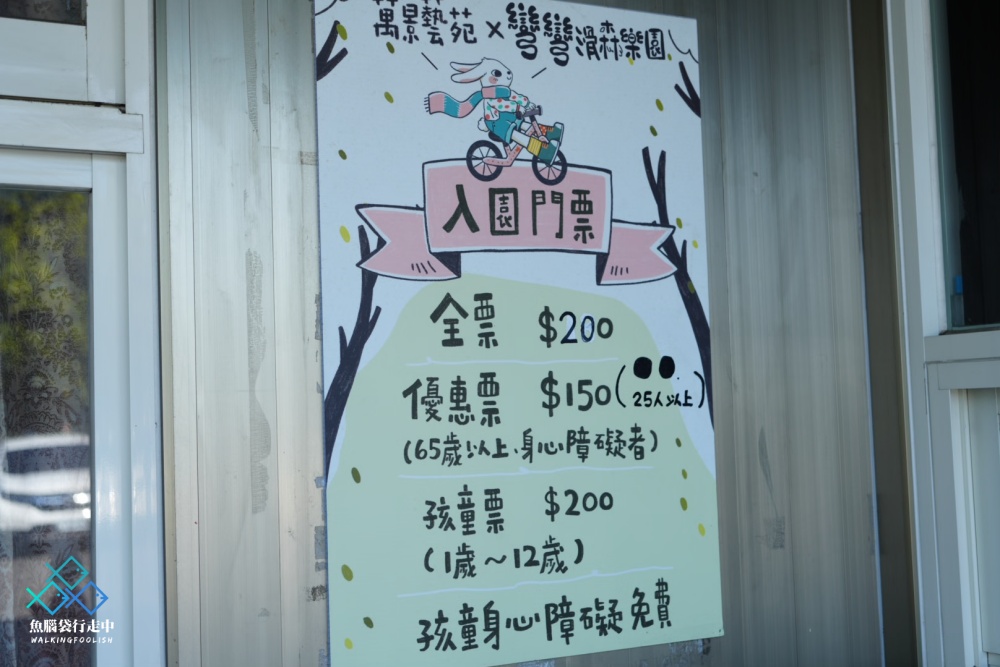 萬景藝苑×彎彎滑森樂園
入園門票
全票 $200
優惠票 $150(25人以上)
(65歲以上、身心障礙者)
孩童票 $200
(1歲~12歲)
孩童身心障礙免費
魚腦袋行走中
WALKINGFOOLISH